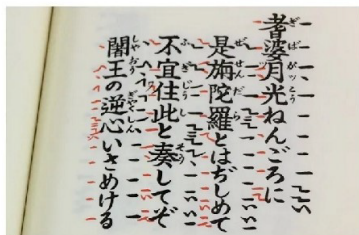 耆婆月光ねんごろに
是旃陀羅とはぢしめて
不宜住此と奏してぞ
闍王の逆心いさめける